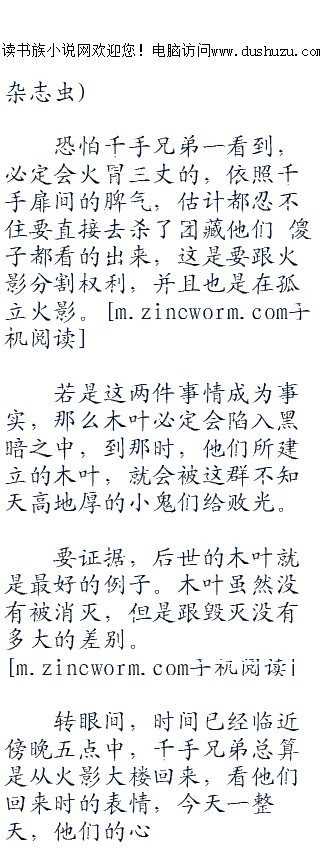 读书族小说网欢迎您！电脑访问www.dushuzu.com
杂志虫)
恐怕千手兄弟一看到，
必定会火冒三丈的，依照千
手扉间的脾气，估计都忍不
住要直接去杀了团藏他们 傻
子都看的出来，这是要跟火
影分割权利，并且也是在孤
立火影。[m.zincworm.com手
机阅读]
若是这两件事情成为事
实，那么木叶必定会陷入黑
暗之中，到那时，他们所建
立的木叶，就会被这群不知
天高地厚的小鬼们给败光。
要证据，后世的木叶就
是最好的例子。木叶虽然没
有被消灭，但是跟毁灭没有
多大的差别。
[m.zincworm.com手机阅读i
转眼间，时间已经临近
傍晚五点中，千手兄弟总算
是从火影大楼回来，看他们
回来时的表情，今天一整
天，他们的心